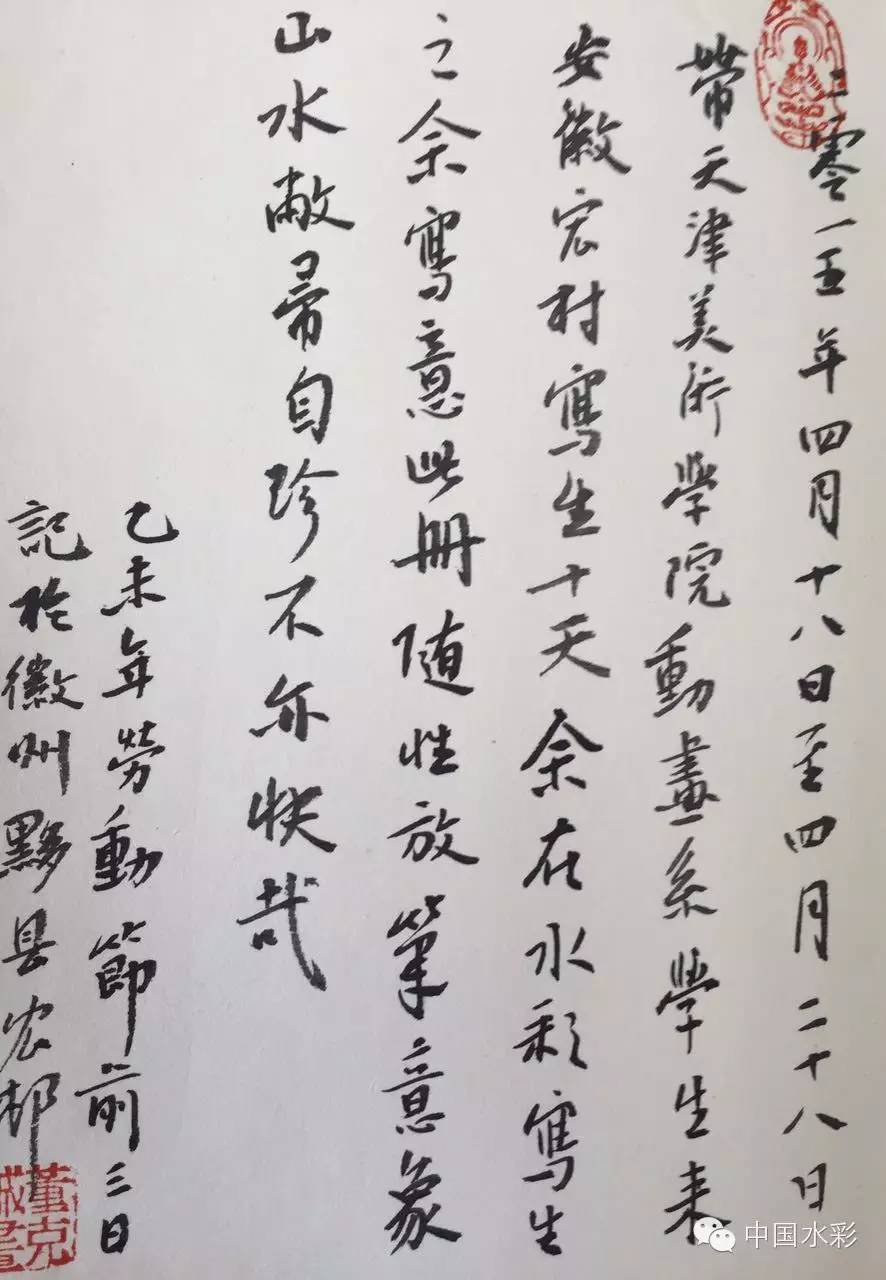 二零一五年四月十八日至四月二十八日
帶天津美術學院動畫系學生来
安徽宏村寫生十天余在水彩寫生
之余寫意此册随性放筆意象
山水敝帚自珍不亦快哉
乙未年勞動節前三日
記於徽州黟县宏邨
董克誠畫
中国水彩